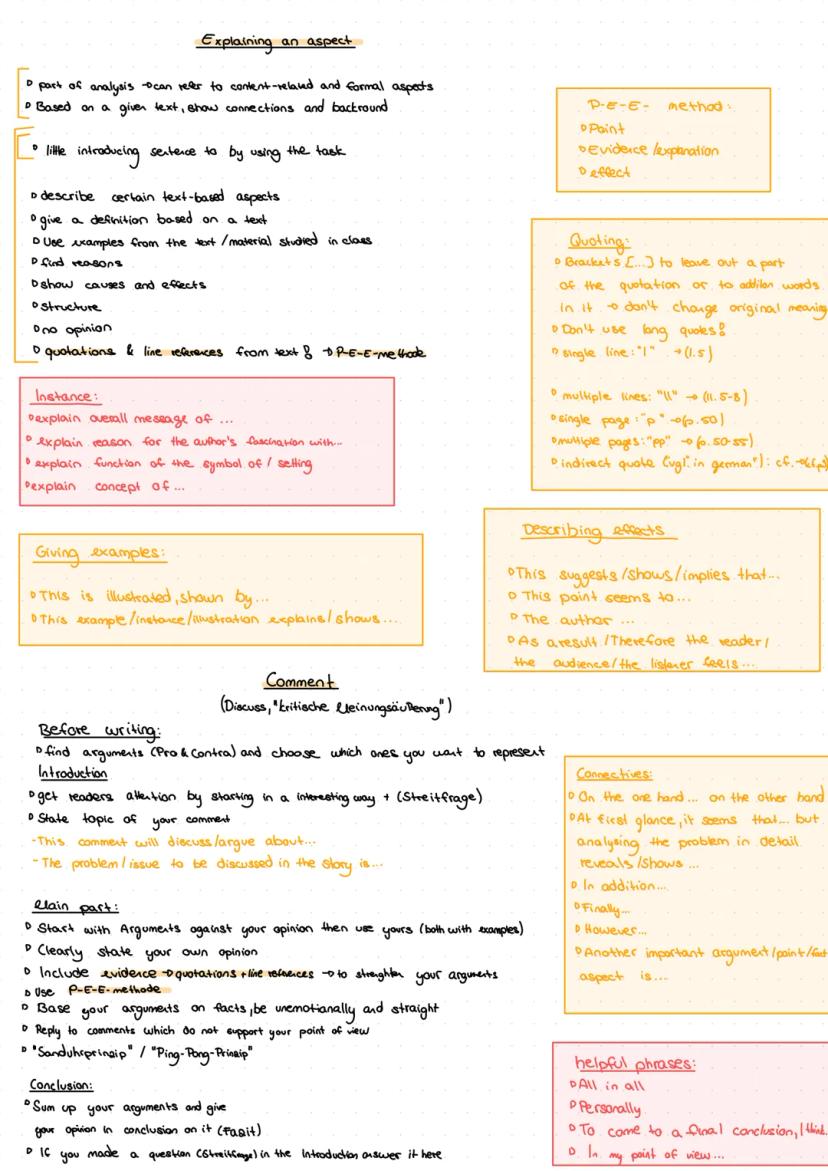 Explaining an aspect
▷ part of analysis → can refer to content-related and formal aspects
▷ Based on a given text, show connections and backround
▷ little introducing sentence to by using the task
▷ describe certain text-based aspects
▷ give a definition based on a text
▷ Use examples from the text / material studied in class
▷ find reasons
▷ show causes and effects
▷ structure
▷ no opinion
▷ quotations & line references from text! → P-E-E-methode
P-E-E- method:
▷ Point
▷ Evidence /explanation
▷ effect
Quoting:
▷ Brackets [...] to leave out a part
of the quotation or to addition words
in it → don't change original meaning
▷ Don't use long quotes!
▷ single line: "l" → (l.5)
▷ multiple lines: "ll" → (ll. 5-8)
▷ single page: "p" → (p. 50)
▷ multiple pages: "pp" → (p. 50-55)
▷ indirect quote ("vgl." in german"): cf. →
Instance:
▷ explain overall message of ...
▷ explain reason for the author's fascination with...
▷ explain function of the symbol of / setting
▷ explain concept of ...
Giving examples:
▷ This is illustrated, shown by...
▷ This example/instance/illustration explains/shows...
Describing effects
▷ This suggests/shows/implies that...
▷ This point seems to...
▷ The author ...
▷ As a result /Therefore the reader/
the audience/the listener feels...
Comment
(Discuss, "kritische Meinungsäußerung")
Before writing:
▷ find arguments (Pro & Contra) and choose which ones you want to represent
Introduction
▷ get readers attention by starting in a interesting way + (Streitfrage)
▷ State topic of your comment
- This comment will discuss/argue about...
- The problem/issue to be discussed in the story is...
Main part:
▷ Start with Arguments against your opinion then use yours (both with examples)
▷ Clearly state your own opinion
▷ Include evidence → quotations + line references → to streighten your arguments
▷ Use P-E-E-methode
▷ Base your arguments on facts, be unemotionally and straight
▷ Reply to comments which do not support your point of view
▷ "Sanduhrprinzip" / "Ping-Pong-Prinzip"
Conclusion:
▷ Sum up your arguments and give
your opinion in conclusion on it (Fazit)
▷ If you made a question (Streitfrage) in the Introduction answer it here
Connectives:
▷ On the one hand... on the other hand
▷ At first glance, it seems that... but
analysing the problem in detail
reveals/shows ...
▷ In addition...
▷ Finally...
▷ However...
▷ Another important argument/point/fact
aspect is...
helpful phrases:
▷ All in all
▷ Personally
▷ To come to a final conclusion, I think
▷ In my point of view...